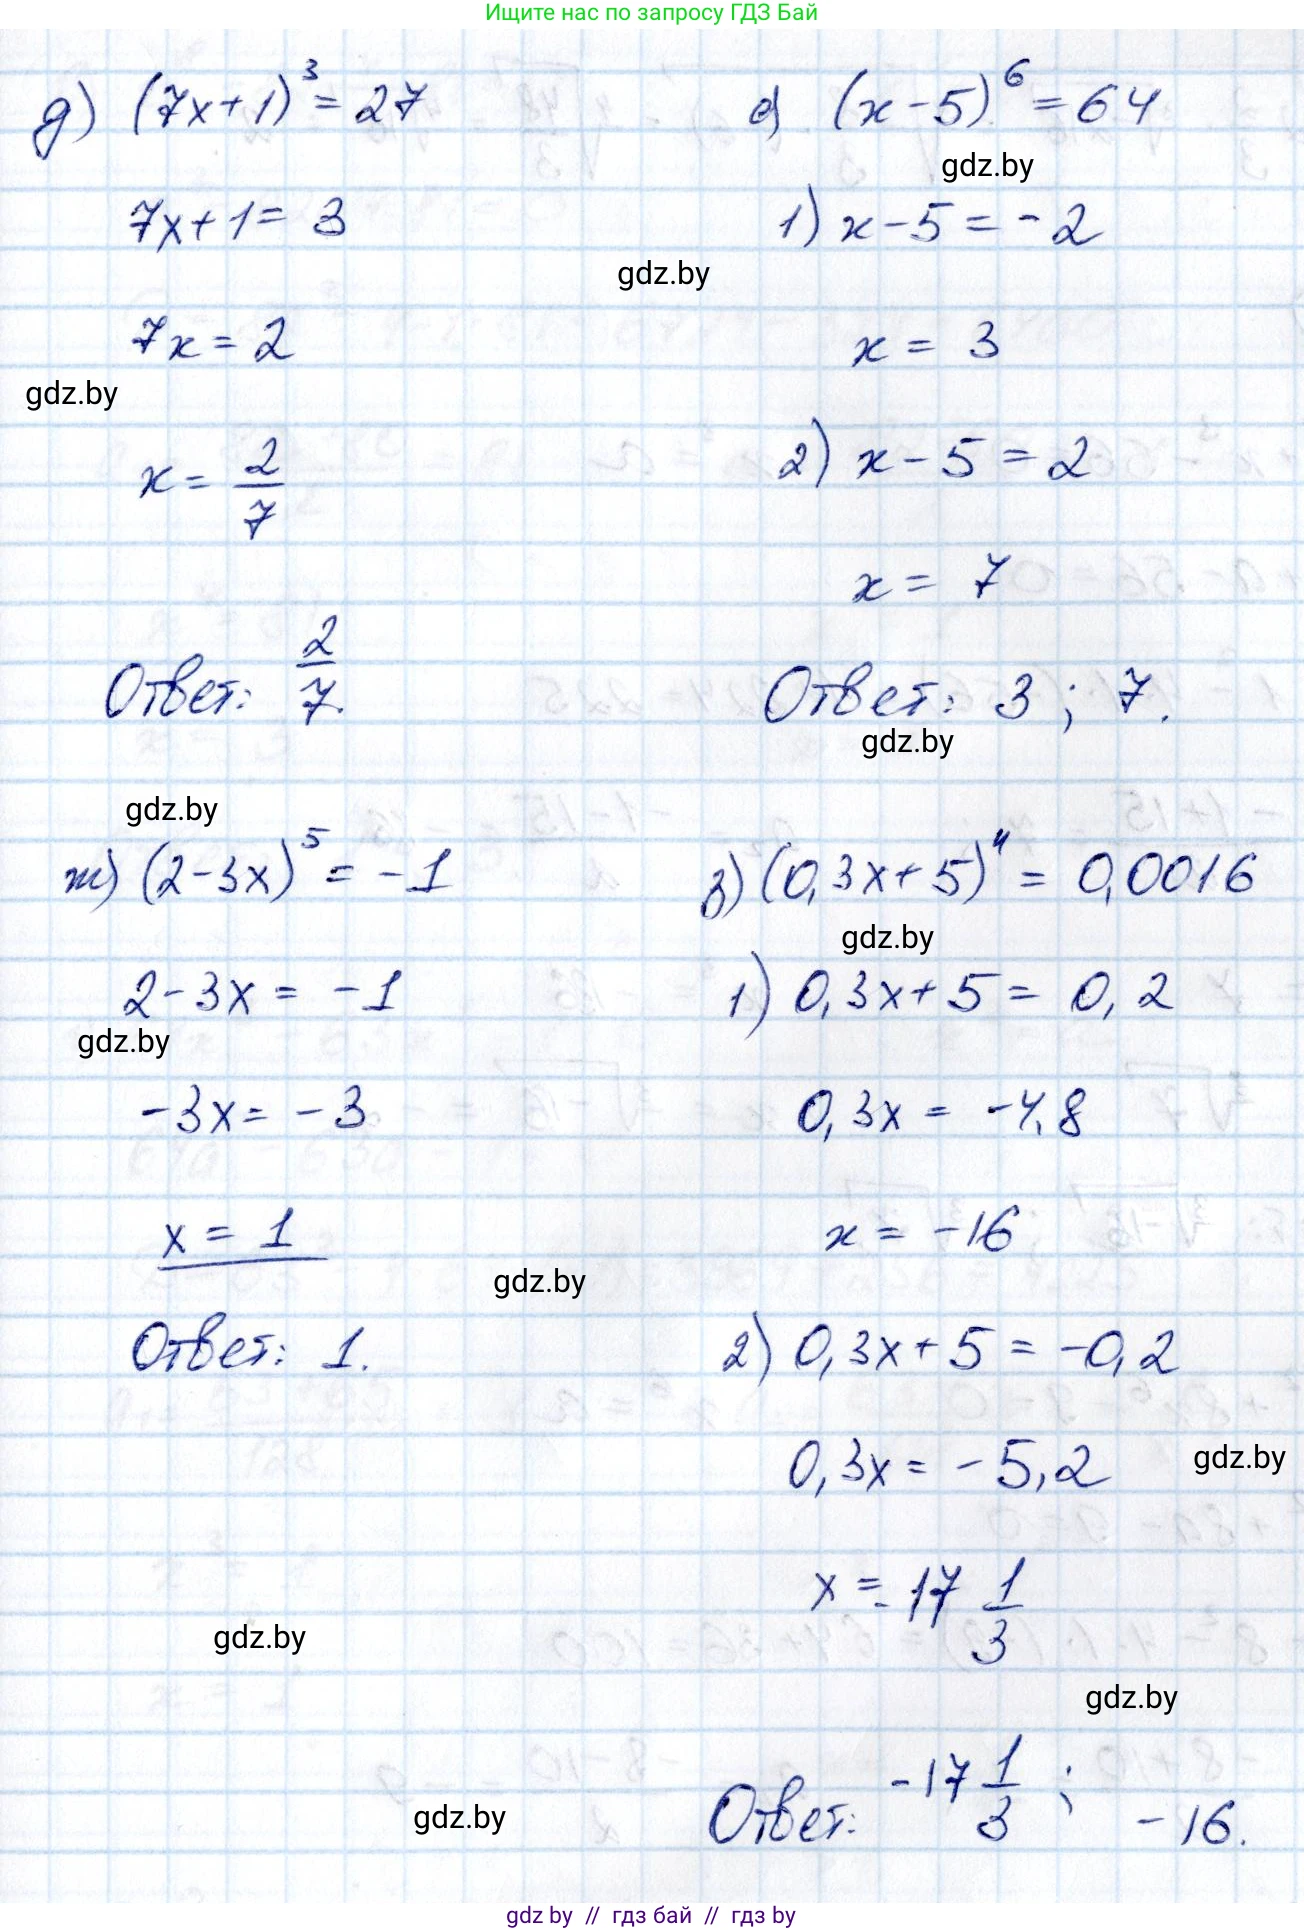 Ищите нас по запросу ГДЗ Бай
д) (7x+1)³ = 27
7x+1 = 3
7x = 2
gdz.by
x = 2/7
Ответ: 2/7.
е) (x-5)⁶ = 64
gdz.by
1) x-5 = -2
gdz.by
x = 3
2) x-5 = 2
x = 7
Ответ: 3; 7.
gdz.by
gdz.by
ж) (2-3x)⁵ = -1
2-3x = -1
gdz.by
-3x = -3
x = 1
gdz.by
Ответ: 1.
з) (0,3x+5)⁴ = 0,0016
gdz.by
1) 0,3x+5 = 0,2
0,3x = -4,8
x = -16
2) 0,3x+5 = -0,2
0,3x = -5,2
gdz.by
x = -17 1/3
gdz.by
gdz.by
Ответ: -17 1/3; -16.
gdz.by
gdz by // гдз бай // гдз by